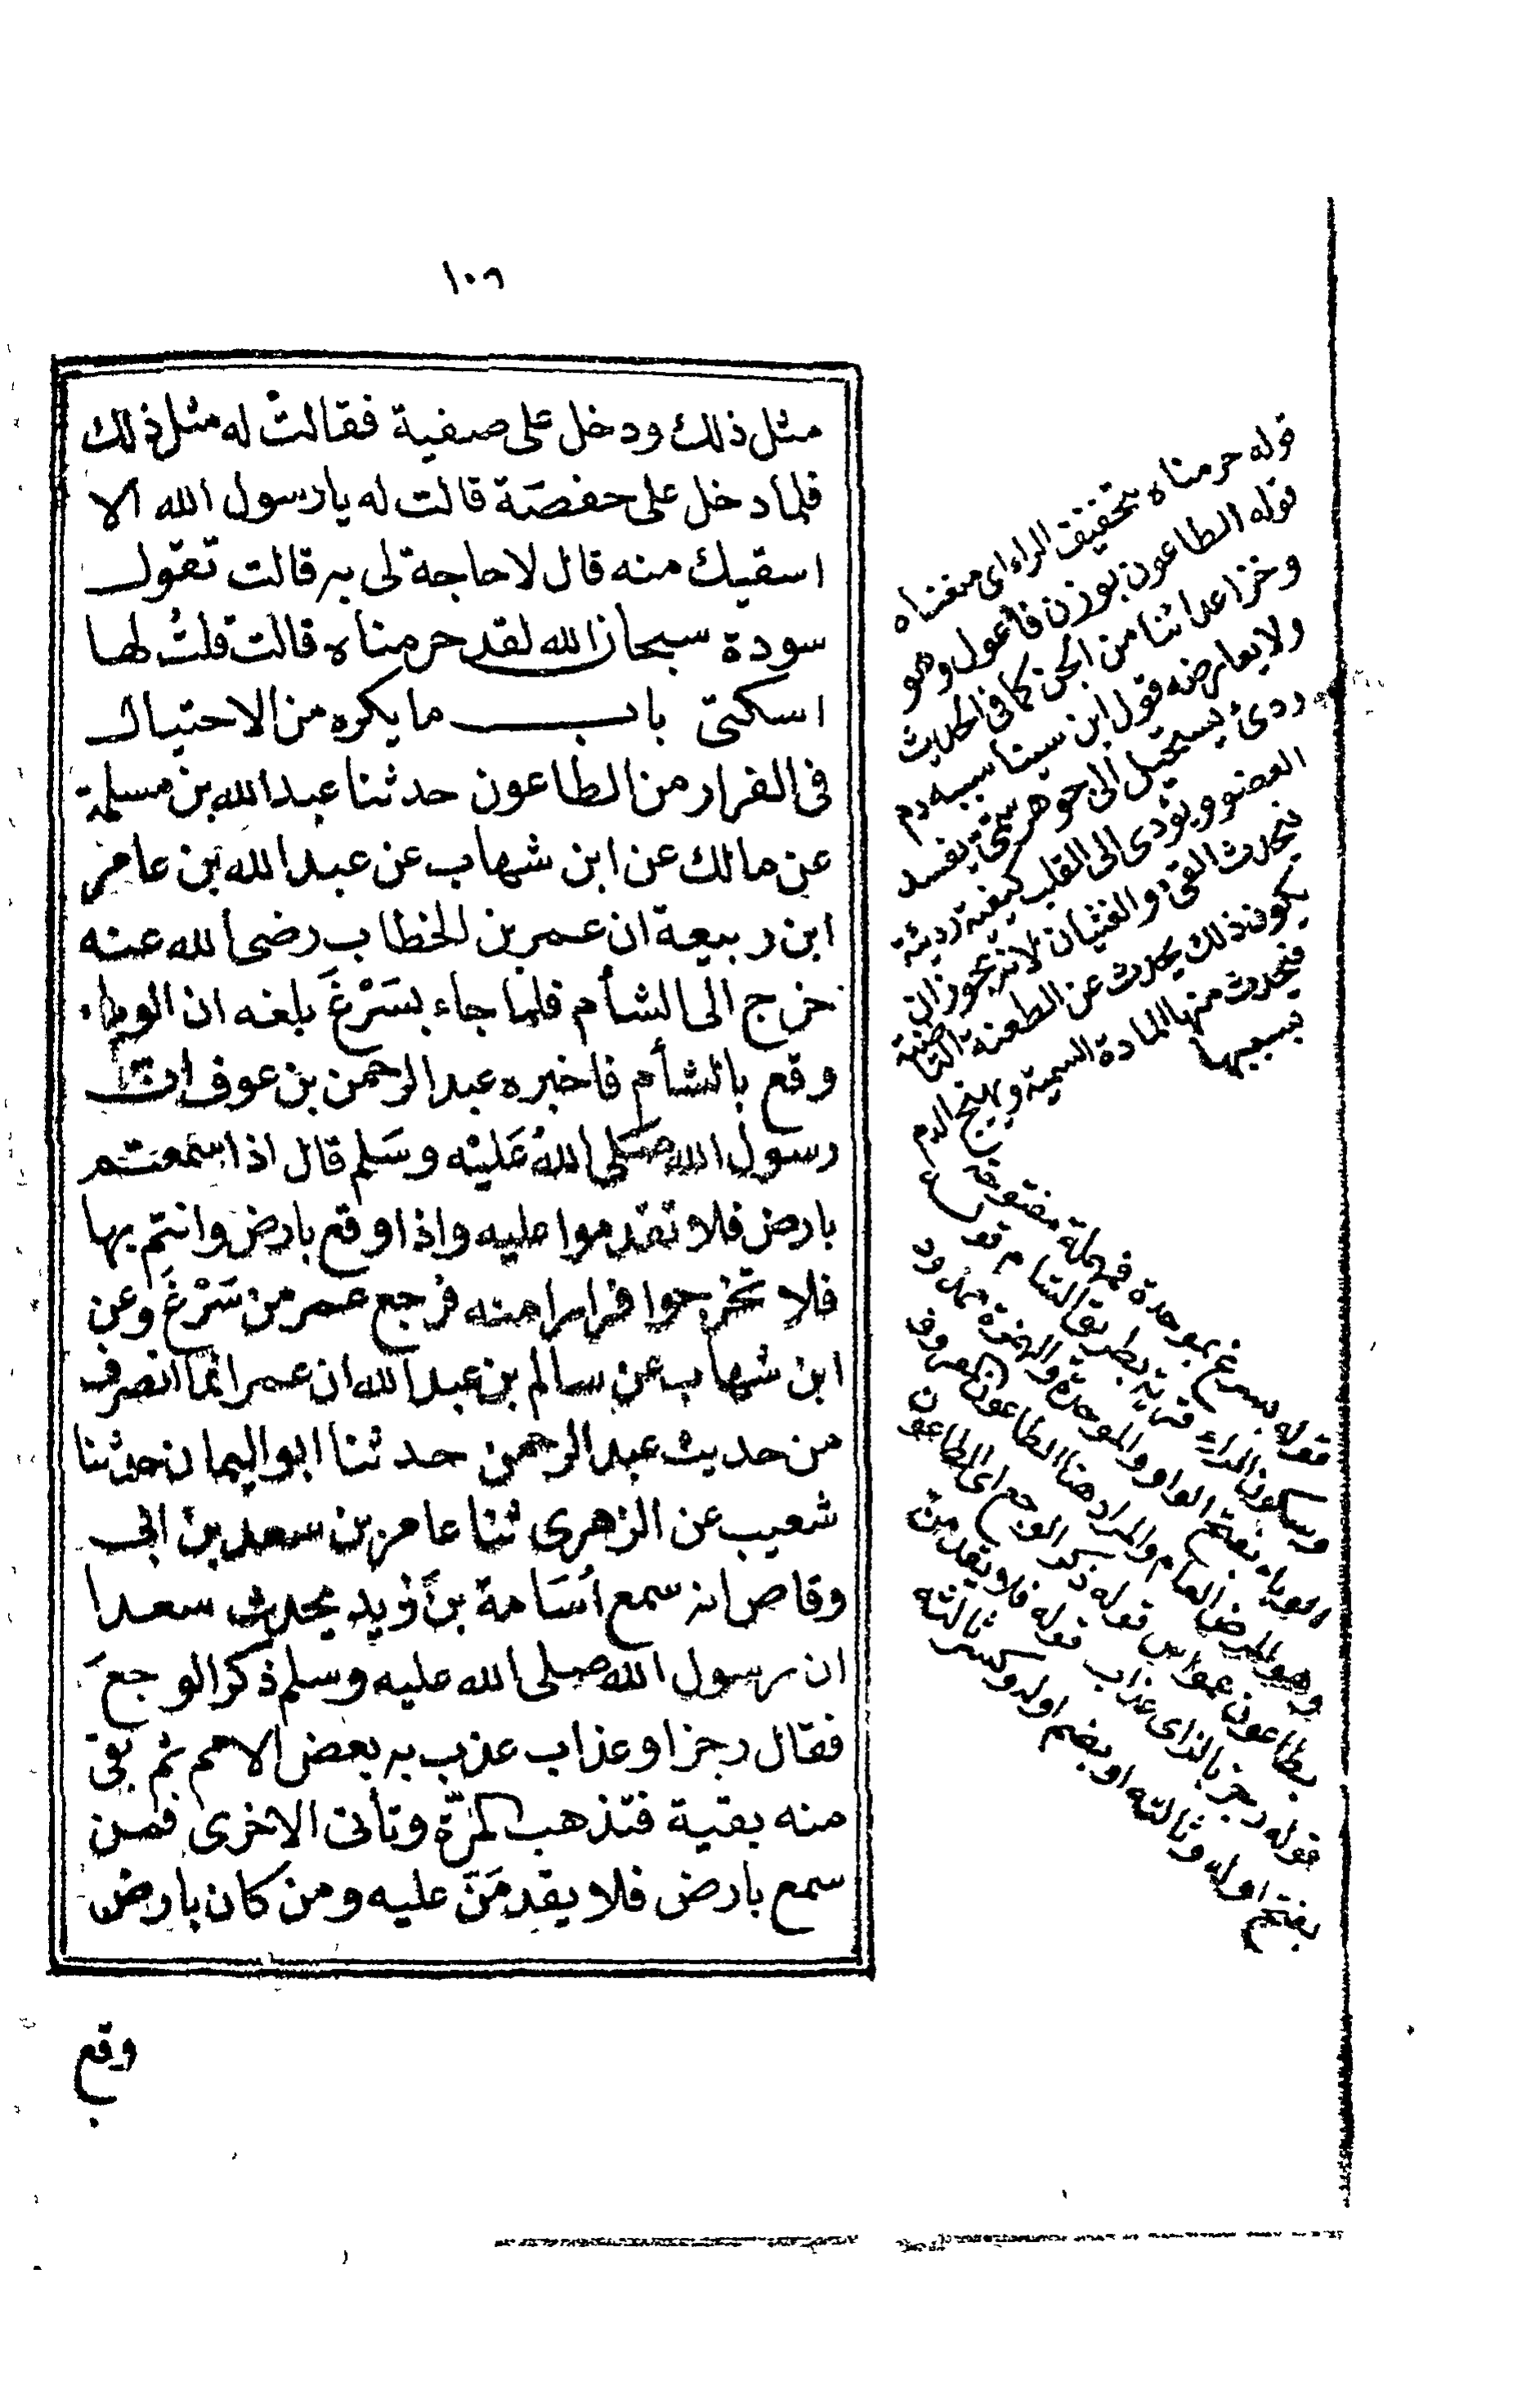 ١٠٦
مثل ذلك ودخل على صفية فقالت له مثل ذلك
فلما دخل على حفصة قالت له يا رسول الله الا
اسقيك منه قال لا حاجة لى به قالت تقول
سودة سبحان الله لقد حرمناه قالت قلتُ لها
اسكتى باب ما يكره من الاحتيال
فى الفرار من الطاعون حدثنا عبد الله بن مسلمة
عن مالك عن ابن شهاب عن عبد الله بن عامر
ابن ربيعة ان عمر بن الخطاب رضى الله عنه
خرج الى الشأم فلما جاء بسَرْغَ بلغه ان الوباء
وقع بالشأم فاخبره عبد الرحمن بن عوف ان
رسول الله صَلى اللهُ عَليْه وسَلم قال اذا سمعتم
بارض فلا تقدموا عليه واذا وقع بارض وانتم بها
فلا تخرجوا فرارا منه فرجع عمر من سَرْغَ وعن
ابن شهاب عن سالم بن عبد الله ان عمر انما انصرف
من حديث عبد الرحمن حدثنا ابو اليمان حدثنا
شعيب عن الزهرى ثنا عامر بن سعد بن ابى
وقاص انه سمع أسَامة بنَ زيد يحدث سعدا
ان رسول الله صلى الله عليه وسلم ذكر الوجعَ
فقال رجز او عذاب عذب به بعض الامم ثم بقى
منه بقية فتذهب المرّة وتأتى الاخرى فمن
سمع بارض فلا يقدمَنّ عليه ومن كان بارض
وقع
قوله حرمناه بتخفيف الراء اى منعناه
قوله الطاعون بوزن فاعول وهو
وخز اعدائنا من الجن كما فى الحديث
ولا يعارضه قول ابن سينا سببه دم
ردئ يستحيل الى جوهر سمى يفسد
العضو ويؤدى الى القلب كيفية رديئة
فيحدث القئ والغثيان لانه يجوز ان
يكون ذلك يحدث عن الطعنة الباطنة
فيحدث منها المادة السمية ويهيج الدم
بسببها
قوله بسرغ بموحدة فمهملة مفتوحة
وسكون الراء قرية بطريق الشام
الوباء بفتح الواو والموحدة والهمزة ممدود
وهو المرض العام والمراد هنا الطاعون المعروف
بطاعون عمواس قوله ذكر الوجع اى الطاعون
قوله رجز بالزاى عذاب قوله فلا يقدمن
بفتح اوله وثالثه او بضم اوله وكسر ثالثه